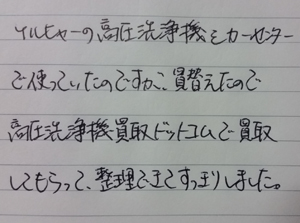 ケルヒャーの高圧洗浄機をカーセンター
で使っていたのですが、買替えたので
高圧洗浄機買取ドットコムで買取
してもらって、整理できてすっきりしました。